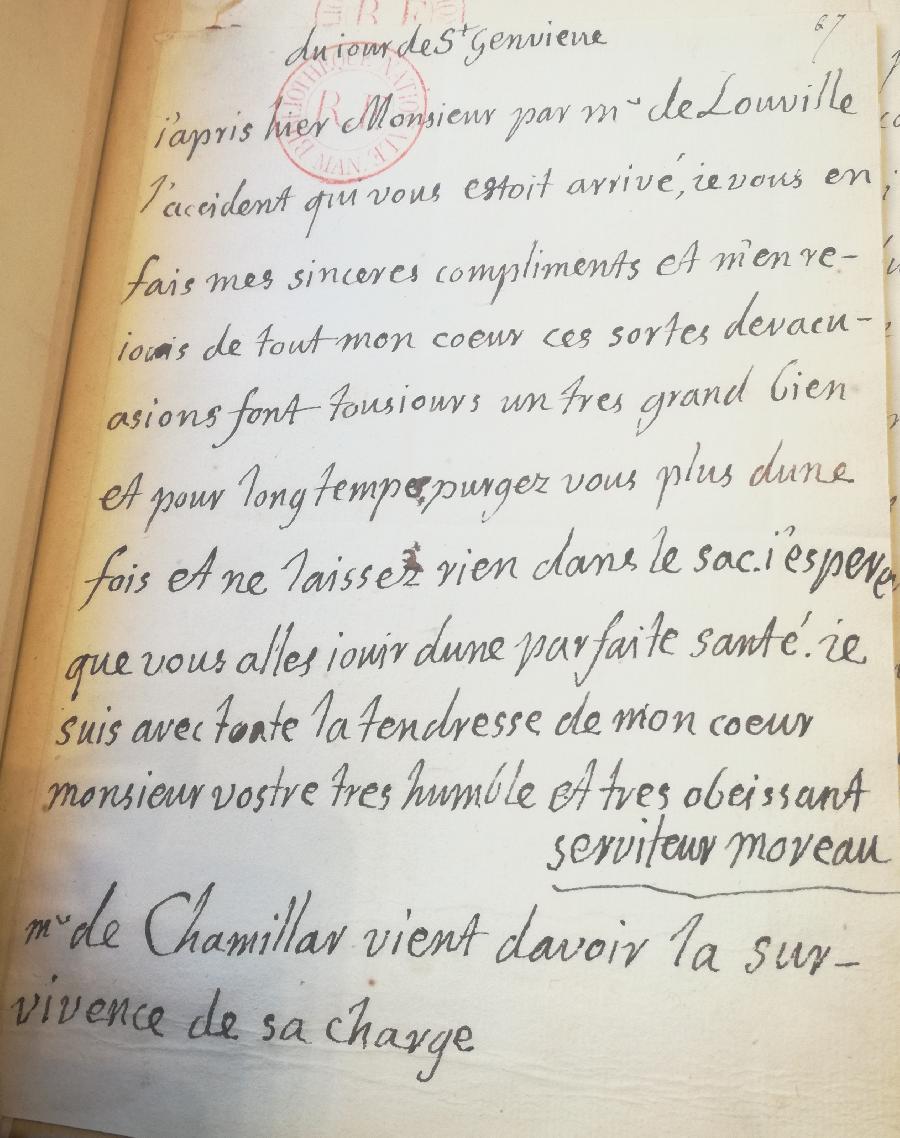 67
du iour de St Genvieve
i'apris hier Monsieur par mr de Louville
l'accident qui vous estoit arrivé, ie vous en
fais mes sinceres compliments et m'en re-
iouis de tout mon coeur ces sortes devacu-
asions font tousiours un tres grand bien
et pour long temps, purgez vous plus dune
fois et ne laissez rien dans le sac. i'espere
que vous alles iouir dune parfaite santé. ie
suis avec toute la tendresse de mon coeur
monsieur vostre tres humble et tres obeissant
serviteur moreau
mr de Chamillar vient davoir la sur-
vivence de sa charge
BIBLIOTHEQUE NATIONALE MAN
R F